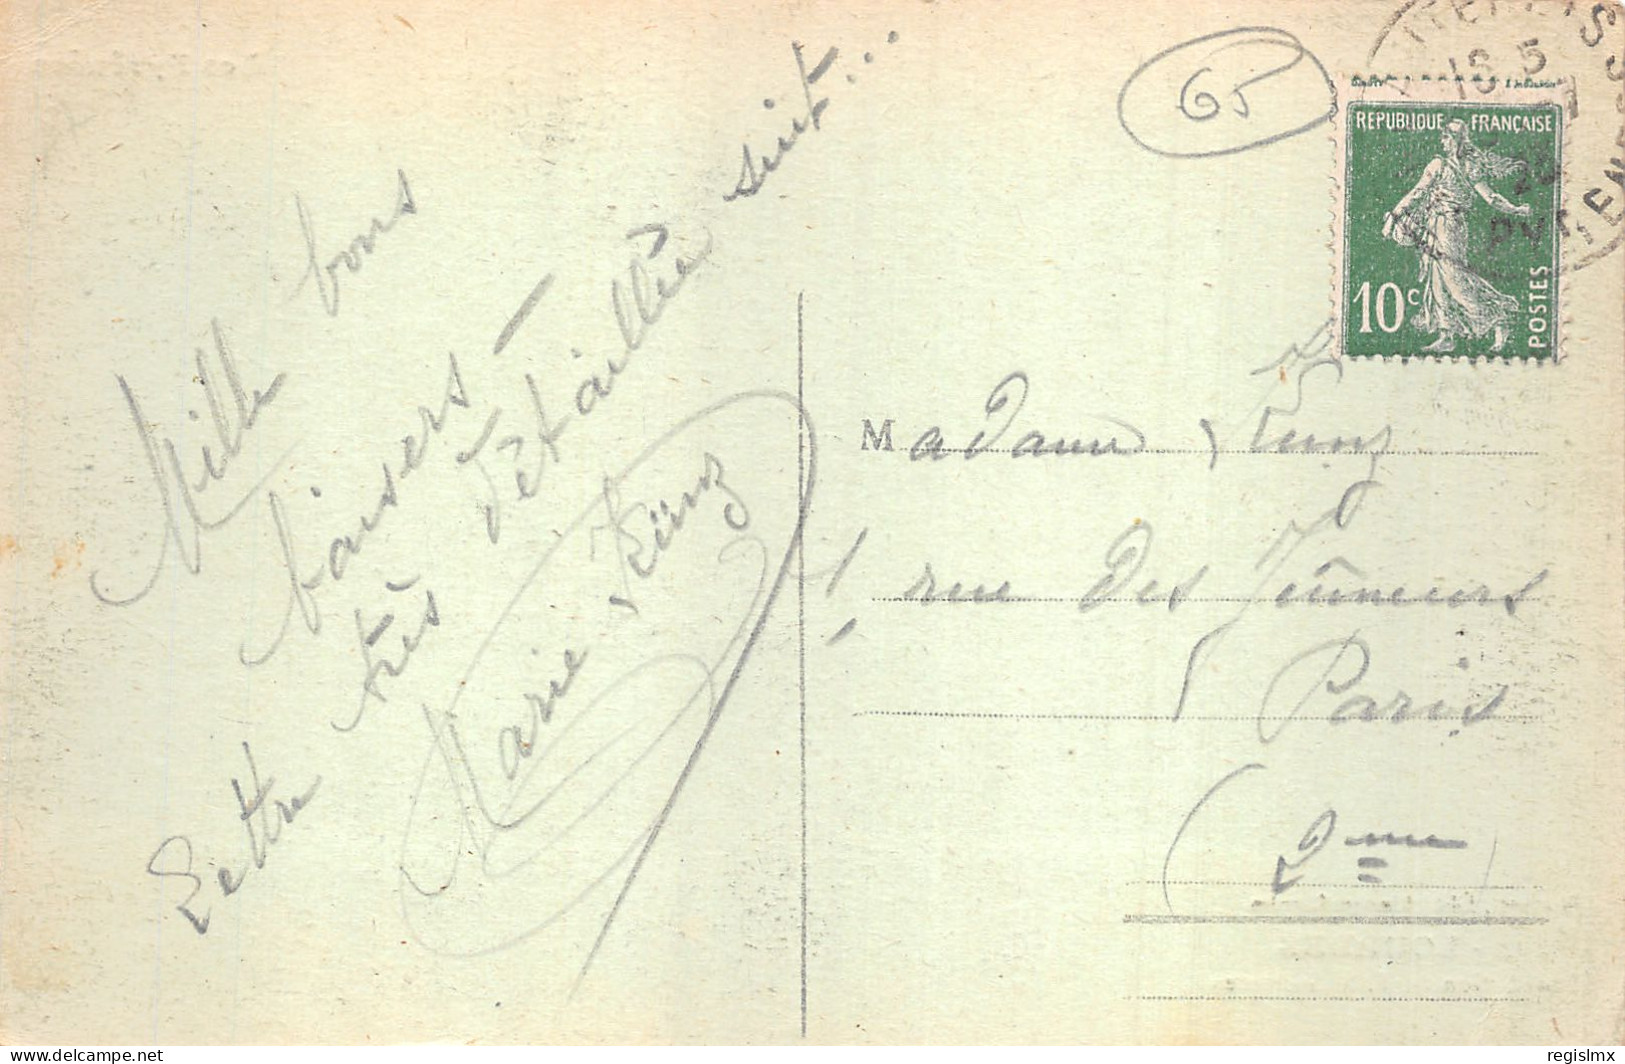 Mille bons
baisers -
Lettre très détaillée suit...
Marie Künz
65
RÉPUBLIQUE FRANÇAISE
10c
POSTES
18 5
Madame Künz
1, rue des Jeûneurs
Paris
(2ème)
delcampe.net
regislmx